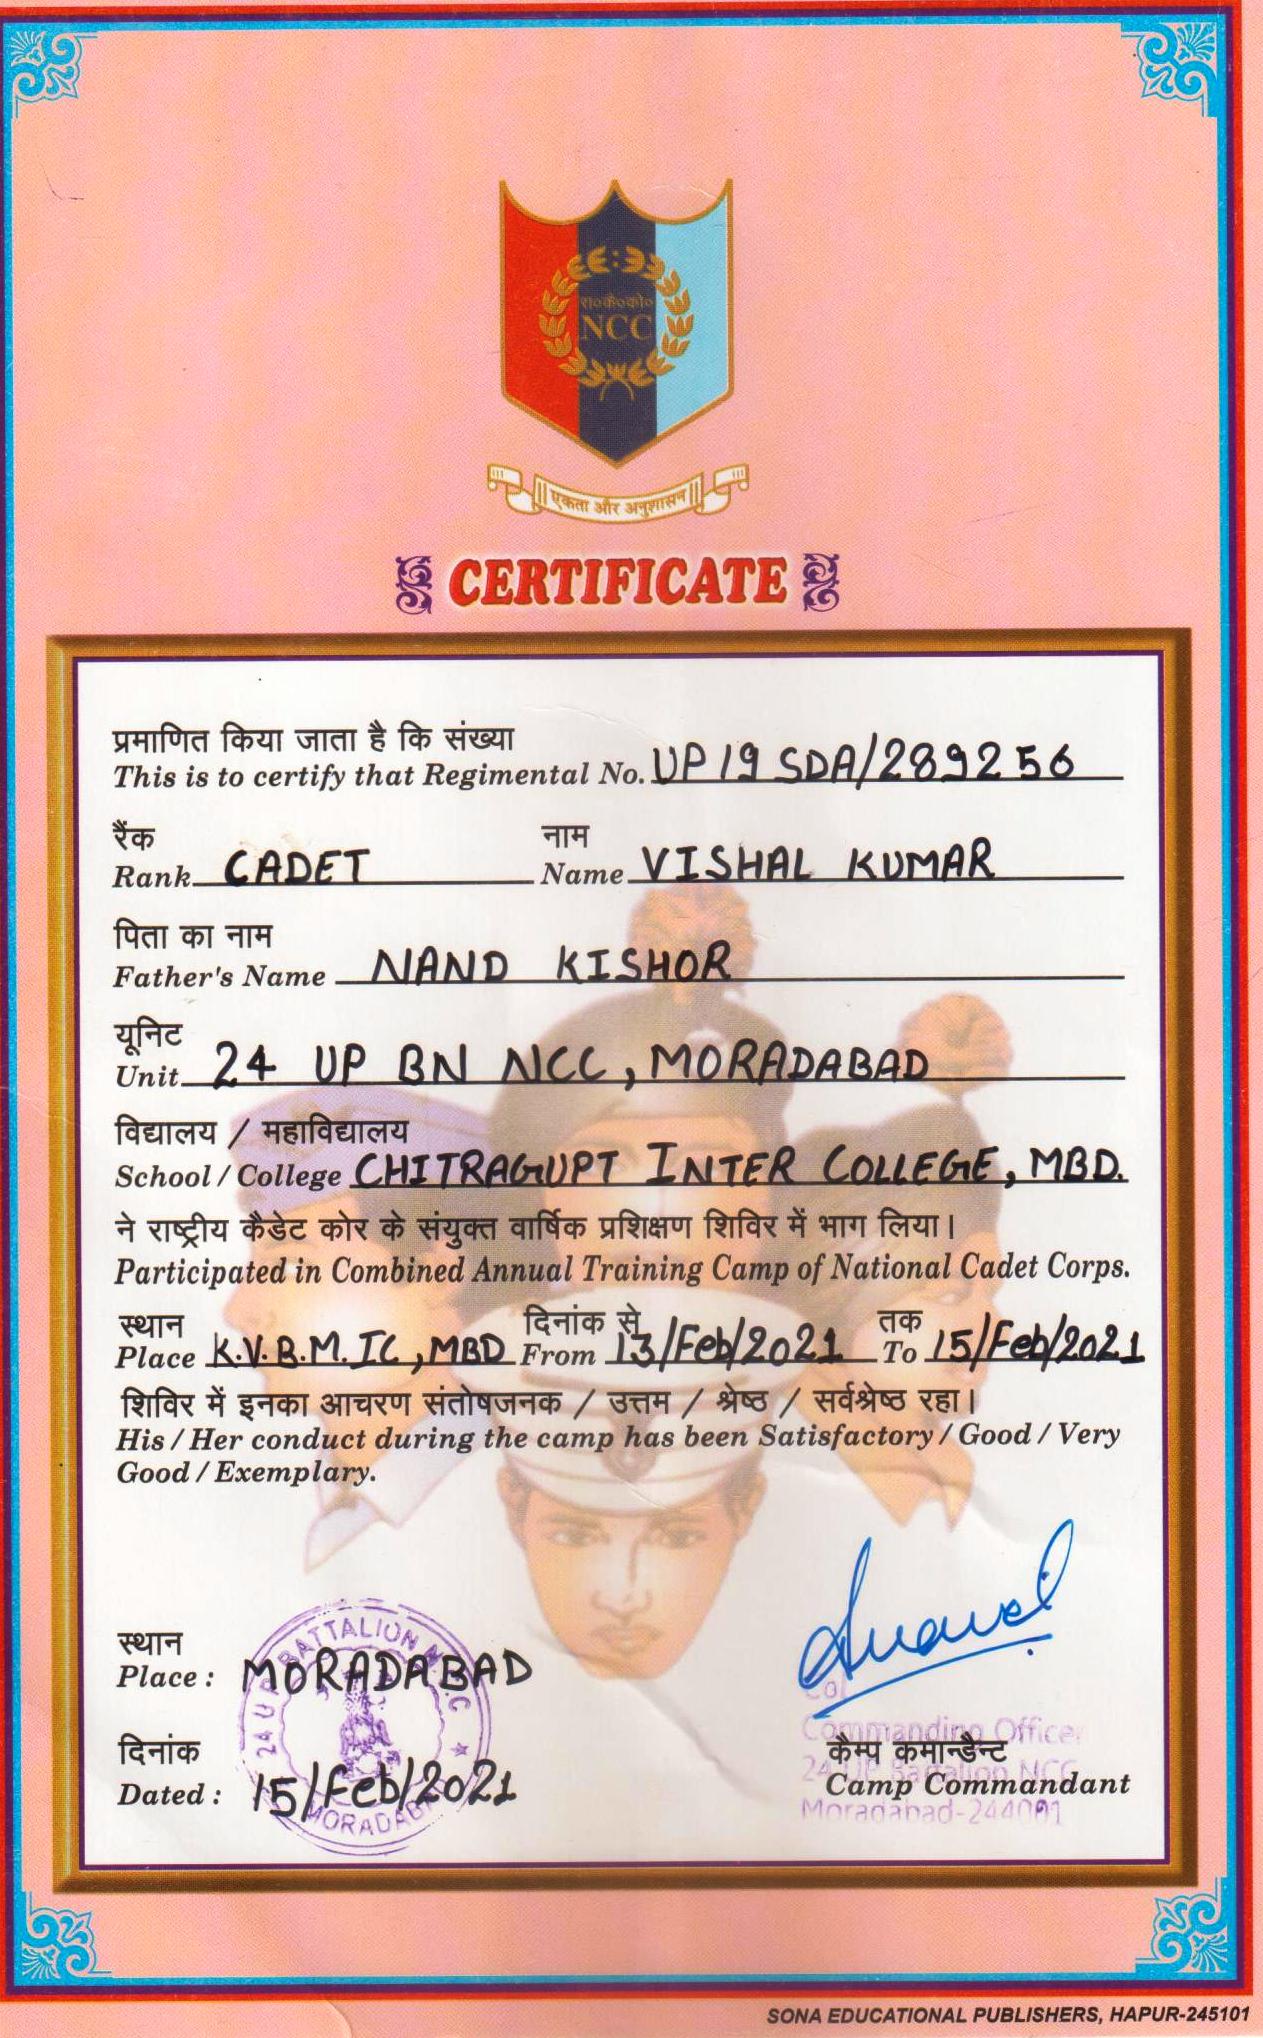 रा०कै०को०
NCC
एकता और अनुशासन
CERTIFICATE
प्रमाणित किया जाता है कि संख्या
This is to certify that Regimental No. UP 19 SDA/289256
रैंक नाम
Rank CADET Name VISHAL KUMAR
पिता का नाम
Father's Name NAND KISHOR
यूनिट
Unit 24 UP BN NCC, MORADABAD
विद्यालय / महाविद्यालय
School / College CHITRAGUPT INTER COLLEGE, MBD.
ने राष्ट्रीय कैडेट कोर के संयुक्त वार्षिक प्रशिक्षण शिविर में भाग लिया।
Participated in Combined Annual Training Camp of National Cadet Corps.
स्थान दिनांक से तक
Place K.V.B.M.IC, MBD From 13/Feb/2021 To 15/Feb/2021
शिविर में इनका आचरण संतोषजनक / उत्तम / श्रेष्ठ / सर्वश्रेष्ठ रहा।
His / Her conduct during the camp has been Satisfactory / Good / Very
Good / Exemplary.
24 UP BATTALION N.C.C
MORADABAD
स्थान
Place : MORADABAD
दिनांक
Dated : 15/Feb/2021
Col
Commanding Officer
24 UP Battalion NCC
Moradabad-244001
कैम्प कमान्डैन्ट
Camp Commandant
SONA EDUCATIONAL PUBLISHERS, HAPUR-245101